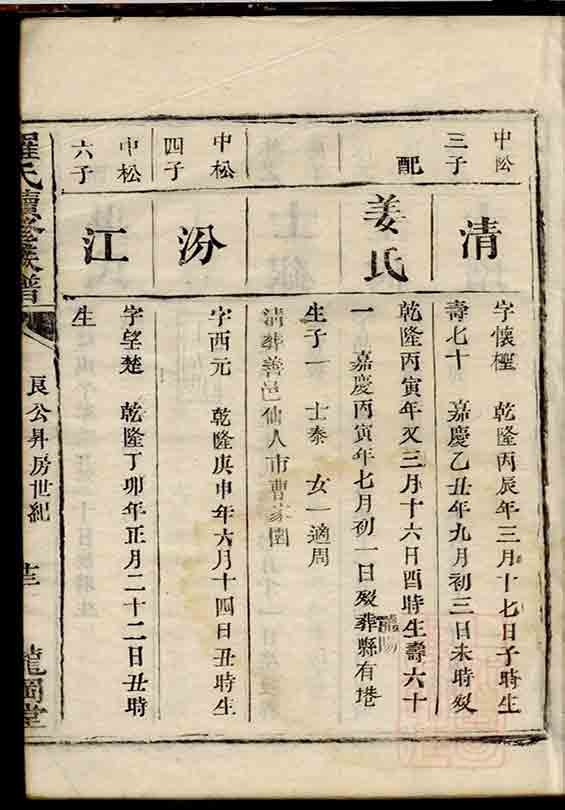 中松
三子
清
字懷極 乾隆丙辰年三月十七日子時生
壽七十 嘉慶乙丑年九月初三日未時歿
配
姜氏
乾隆丙寅年又三月十六日酉時生壽六十
一 嘉慶丙寅年七月初一日歿葬縣有港
生子一 士泰 女一適周
清葬善邑仙人市曹家園
中松
四子
汾
字西元 乾隆庚申年六月十四日丑時生
中松
六子
江
字望楚 乾隆丁卯年正月二十二日丑時
生
羅氏續修族譜
良公昇房世紀
龍閣堂